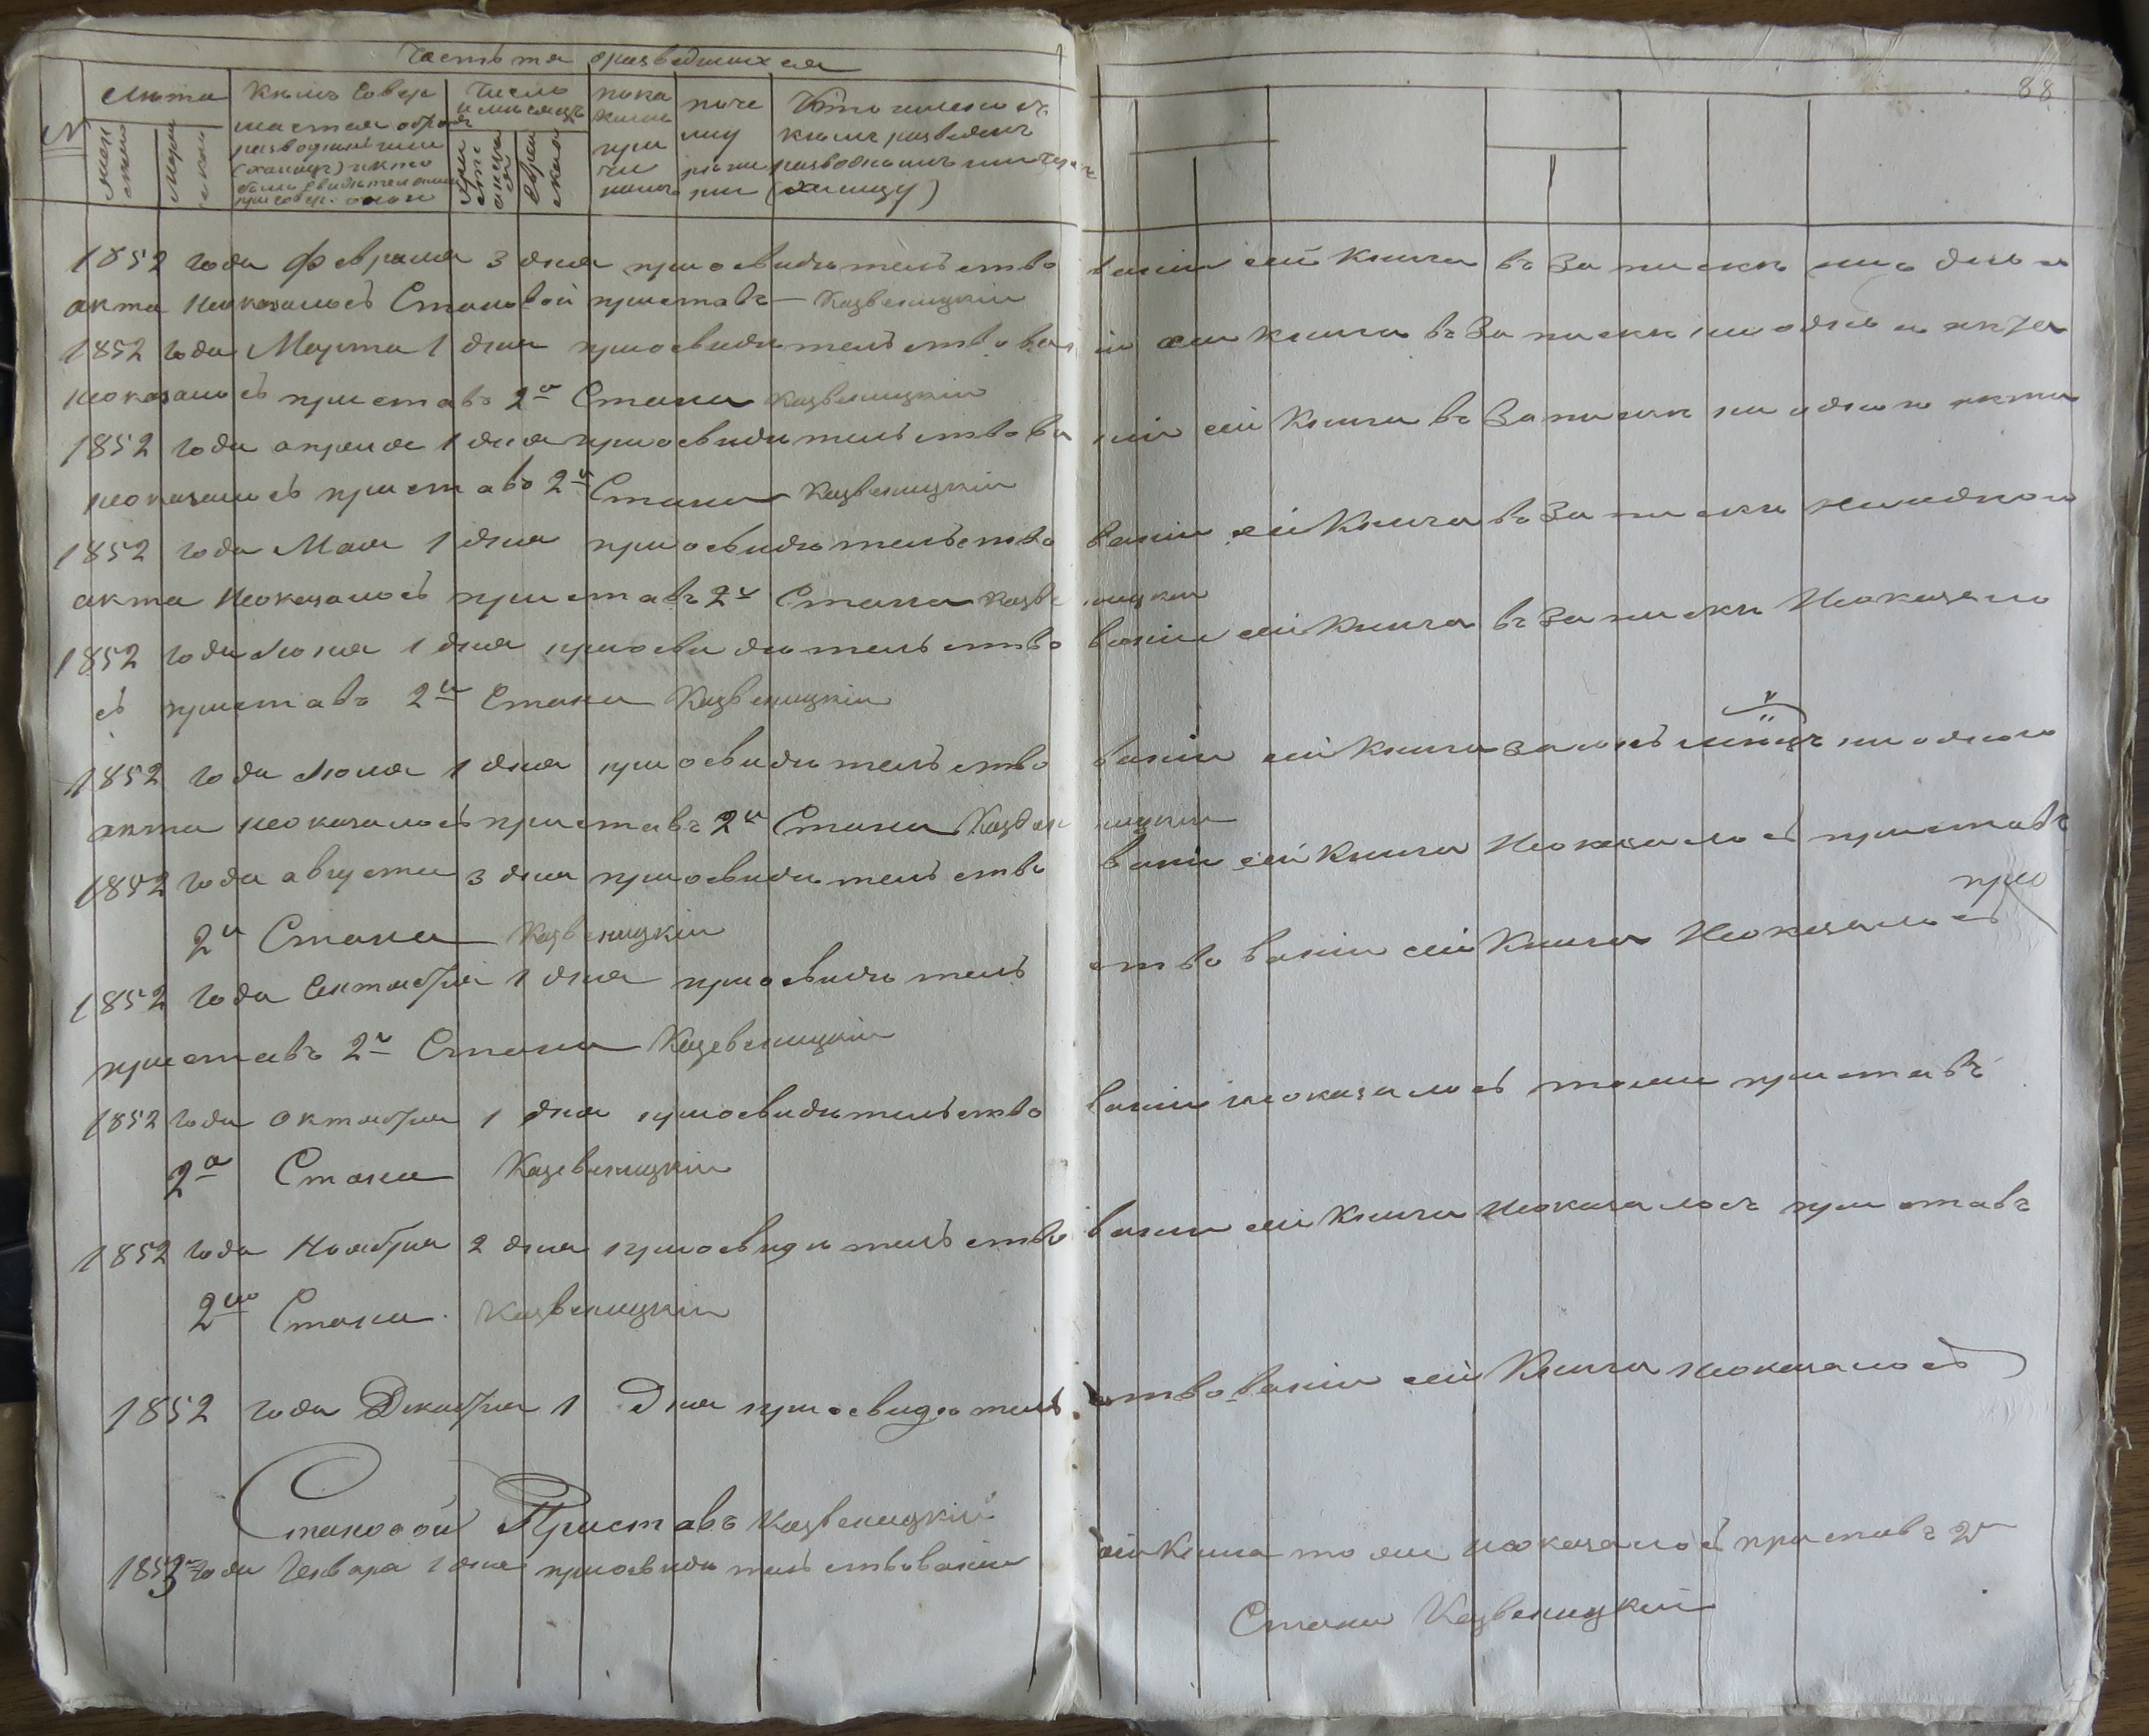 Часть 3я о разведшихся
88
№
Лѣта
Кѣмъ совер
Число
пока
поче
Кто именно съ
шается обряд
и мѣсяцъ
кимъ
му
кѣмъ разведенъ
разводнымъ или
при
разводнымъ или чрезъ
(халицу) и кто
чи
(халицу)
были свидетелями
намъ
при совер. онои
Жен
ские
Муж
ские
Хри
сті
анс
кое
Еврей
ское
1852 года февраля 3 дня при освидѣтельство ваніи сей Книги въ Записки ни одного
акта неоказалось Становой приставъ Казвеницкій
1852 года Марта 1 дня при освидѣтельствован іи сей книги въ Записки ни одного акта
неоказалось приставъ 2го Стана Казвеницкій
1852 года апреля 1 дня при освидѣтельствова ніи сей Книги въ Записки ни одного акта
неоказалось приставъ 2го Стана Казвеницкій
1852 года Мая 1 дня при освидѣтельство ваніи сей Книги въ Записки ниодного
акта Неоказалось приставъ 2го Стана Казве ницкій
1852 года Июня 1 дня при освидѣтельство ваніи сей Книги въ Записки Неоказало
сь приставъ 2го Стана Казвеницкій
1852 года Июля 1 дня при освидѣтельство ваніи сей Книги за июнь мѣсяцъ ни одного
акта неоказалось приставъ 2го Стана Казвен ицкій
1852 года августа 3 дня при освидѣтельство ваніи сей Книги Неоказалось приставъ
2го Стана Казвеницкій
1852 года Сентября 1 дня при освидѣтель ствованіи сей Книги Неоказалось
приставъ 2го Стана Казевеницкій
1852 года октября 1 дня при освидѣтельство ваніи неоказалось приставъ
2го Стана Казевеницкій
1852 года Ноября 2 дня при освидѣтельство ваніи сей Книги Неоказалось приставъ
2го Стана Казвеницкій
1852 года Декабря 1 Дня при освидѣтель ствованіи сей Книги неоказалось
Становой Приставъ Казвеницкій
1853 года Генваря 1 дня при освидѣтельствованіи сей Книги неоказалось приставъ 2го
Стана Казвеницкій